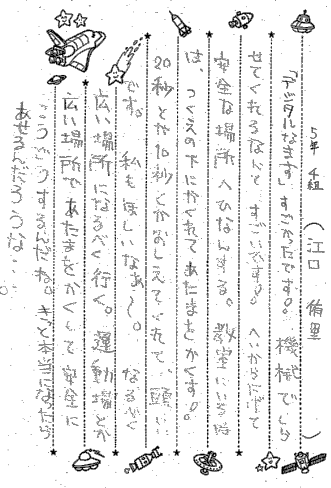 5年 4組 (江口 侑里
「デジタルなまず」すごかったです。機械でしら
せてくれるなんてすごいです。へいから にげて
安全な場所へひなんする。教室にいる時
は、つくえの下にかくれてあたまをかくす。
20秒とか10秒とかおしえてくれて、頭いい
です。私もほしいなぁ〜。なるべく
広い場所になるべく行く。運動場とか
広い場所であたまをかくして安全に
こうどうするんだね。きっと本当になったら
あせるんだろうな…。